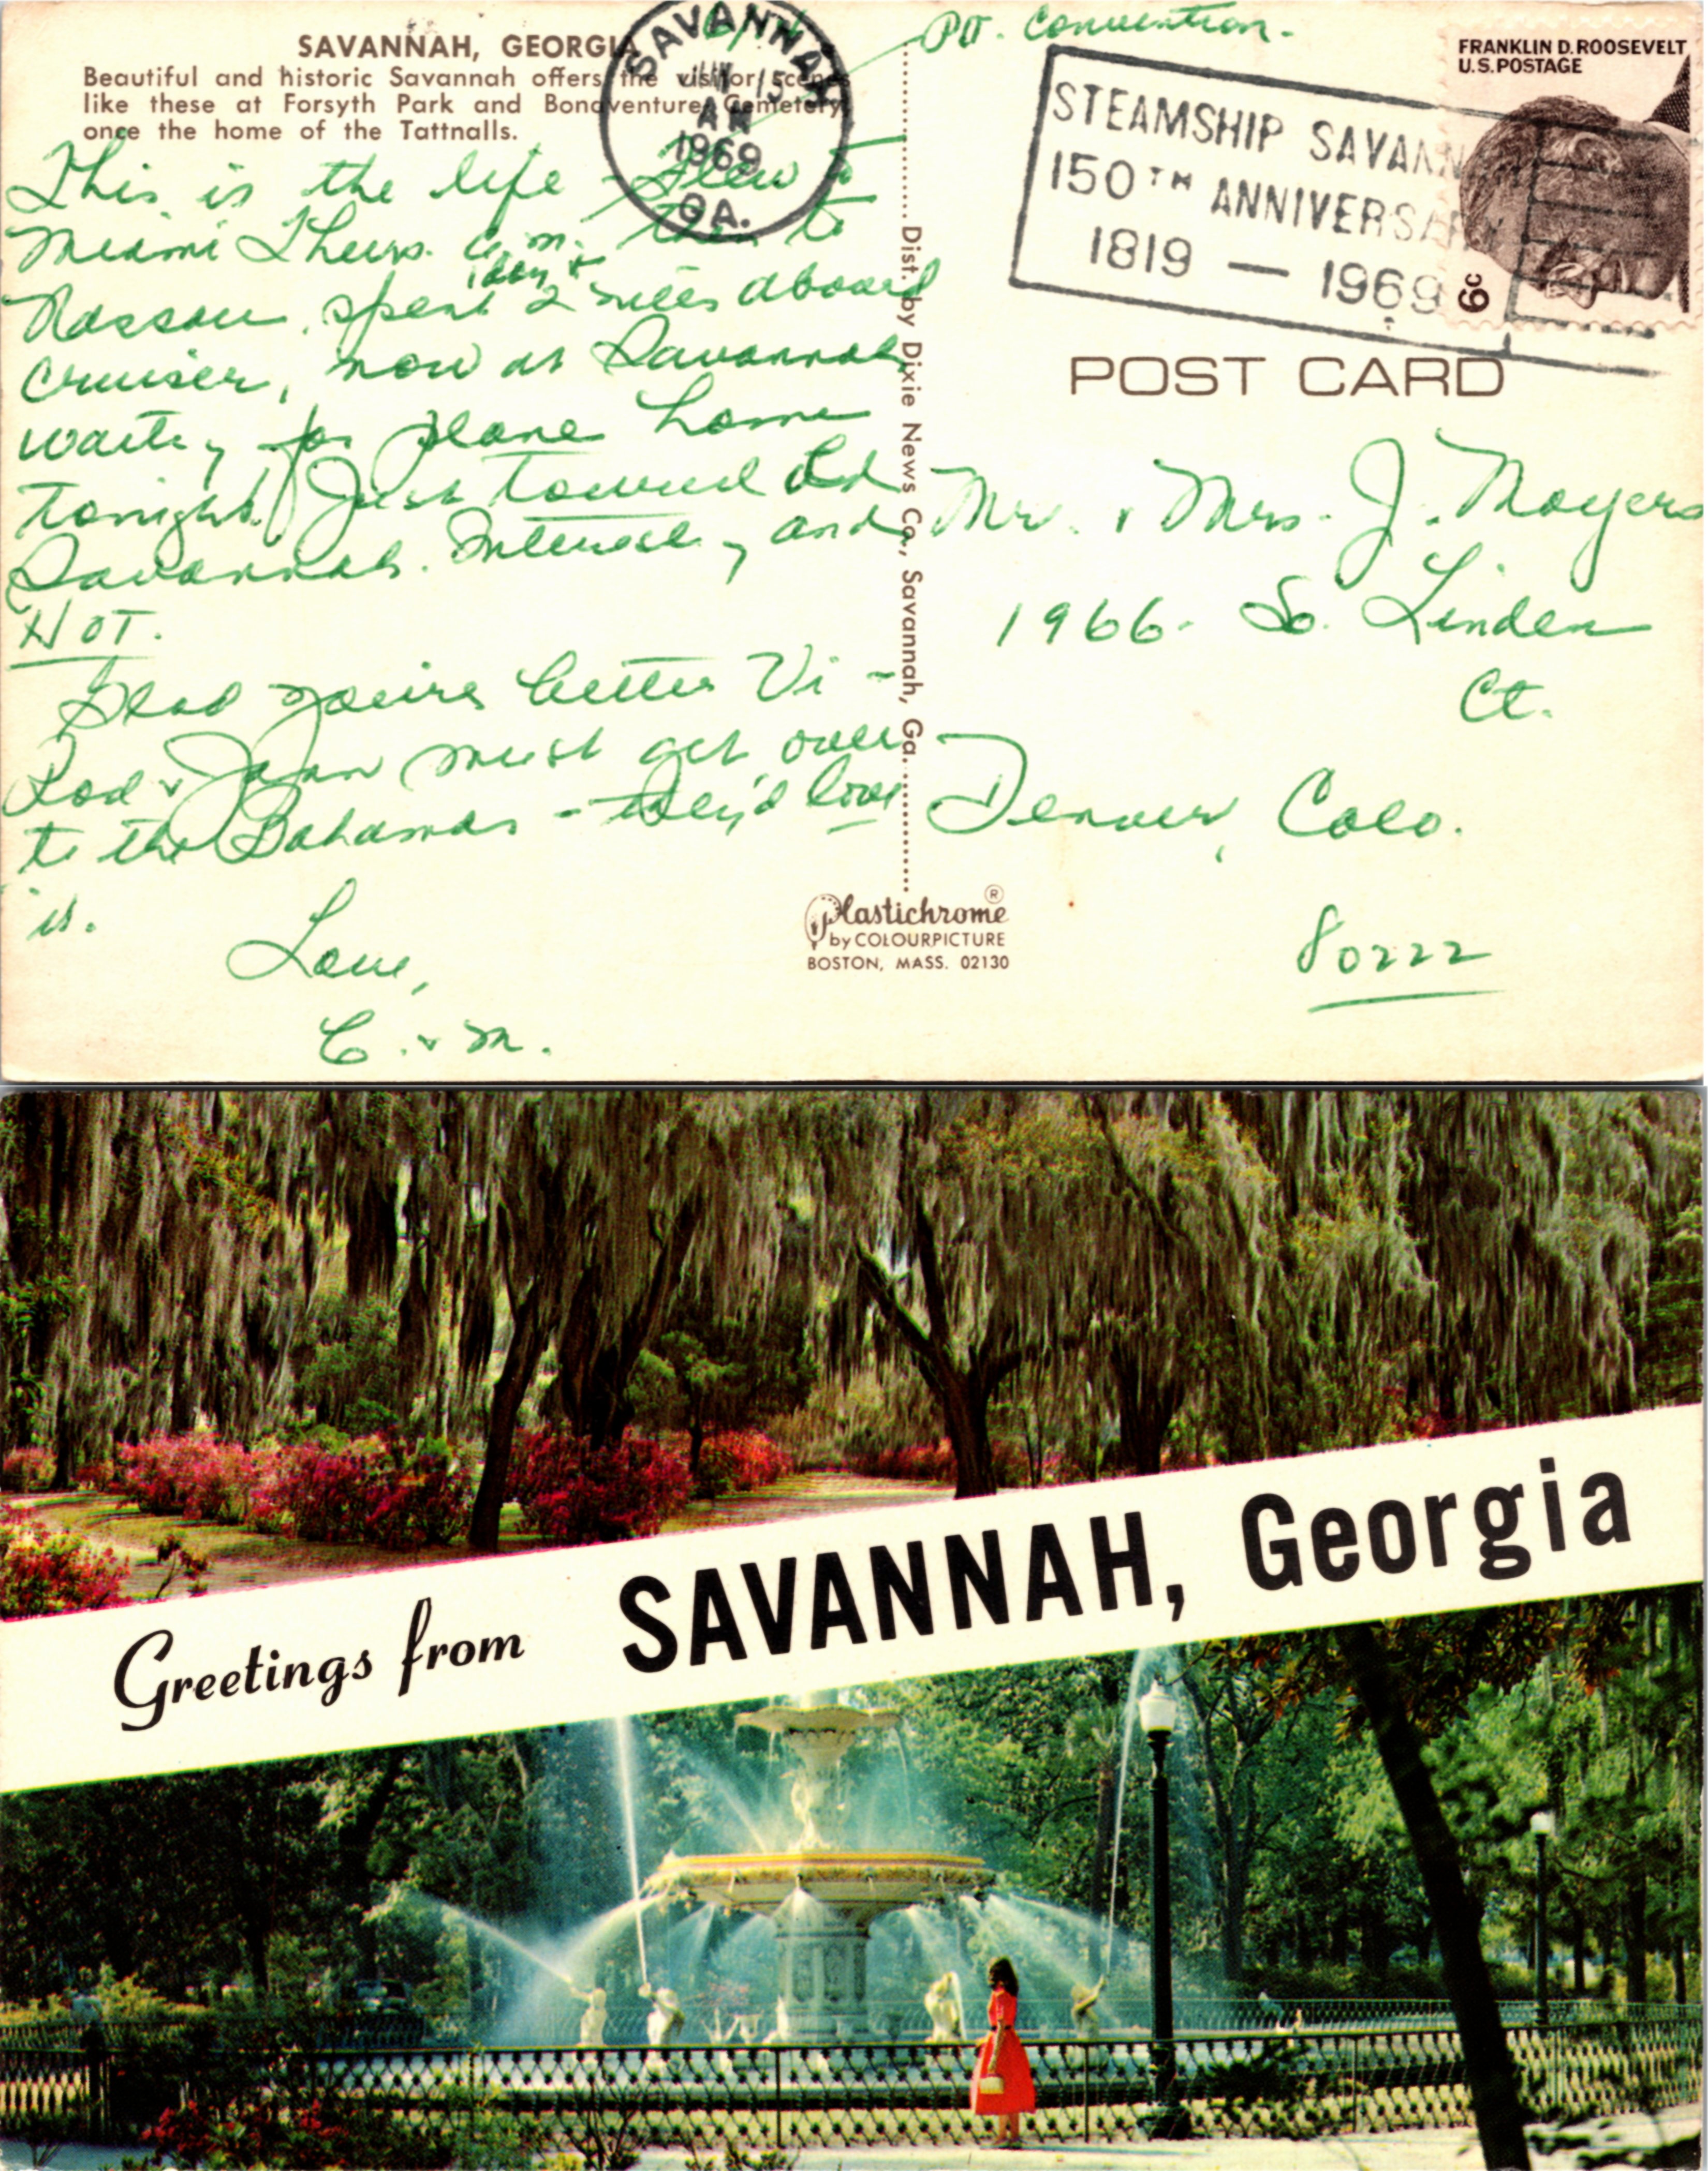 SAVANNAH, GEORGIA
Beautiful and historic Savannah offers the visitor scenes
like these at Forsyth Park and Bonaventure Cemetery,
once the home of the Tattnalls.
SAVANNAH
15
AM
1969
GA.
Convention.
This is the life - flew to
Miami Thurs. a.m. then to
Nassau, spent 1 day + 2 nites aboard
cruiser, now at Savannah
waiting for plane home
tonight. Just toured Old
Savannah. Interesting and
HOT.
Glad you're better Vi -
Rod & Jann must get over
to the Bahamas - they'd love
it.
Love,
C. & M.
Dist. by Dixie News Co., Savannah, Ga.
Plastichrome ®
by COLOURPICTURE
BOSTON, MASS. 02130
FRANKLIN D. ROOSEVELT
U.S. POSTAGE
6c
STEAMSHIP SAVANN
150TH ANNIVERSARY
1819 — 1969
POST CARD
Mr. & Mrs. J. Moyers
1966 - So. Linden
Ct.
Denver, Colo.
80222
Greetings from SAVANNAH, Georgia